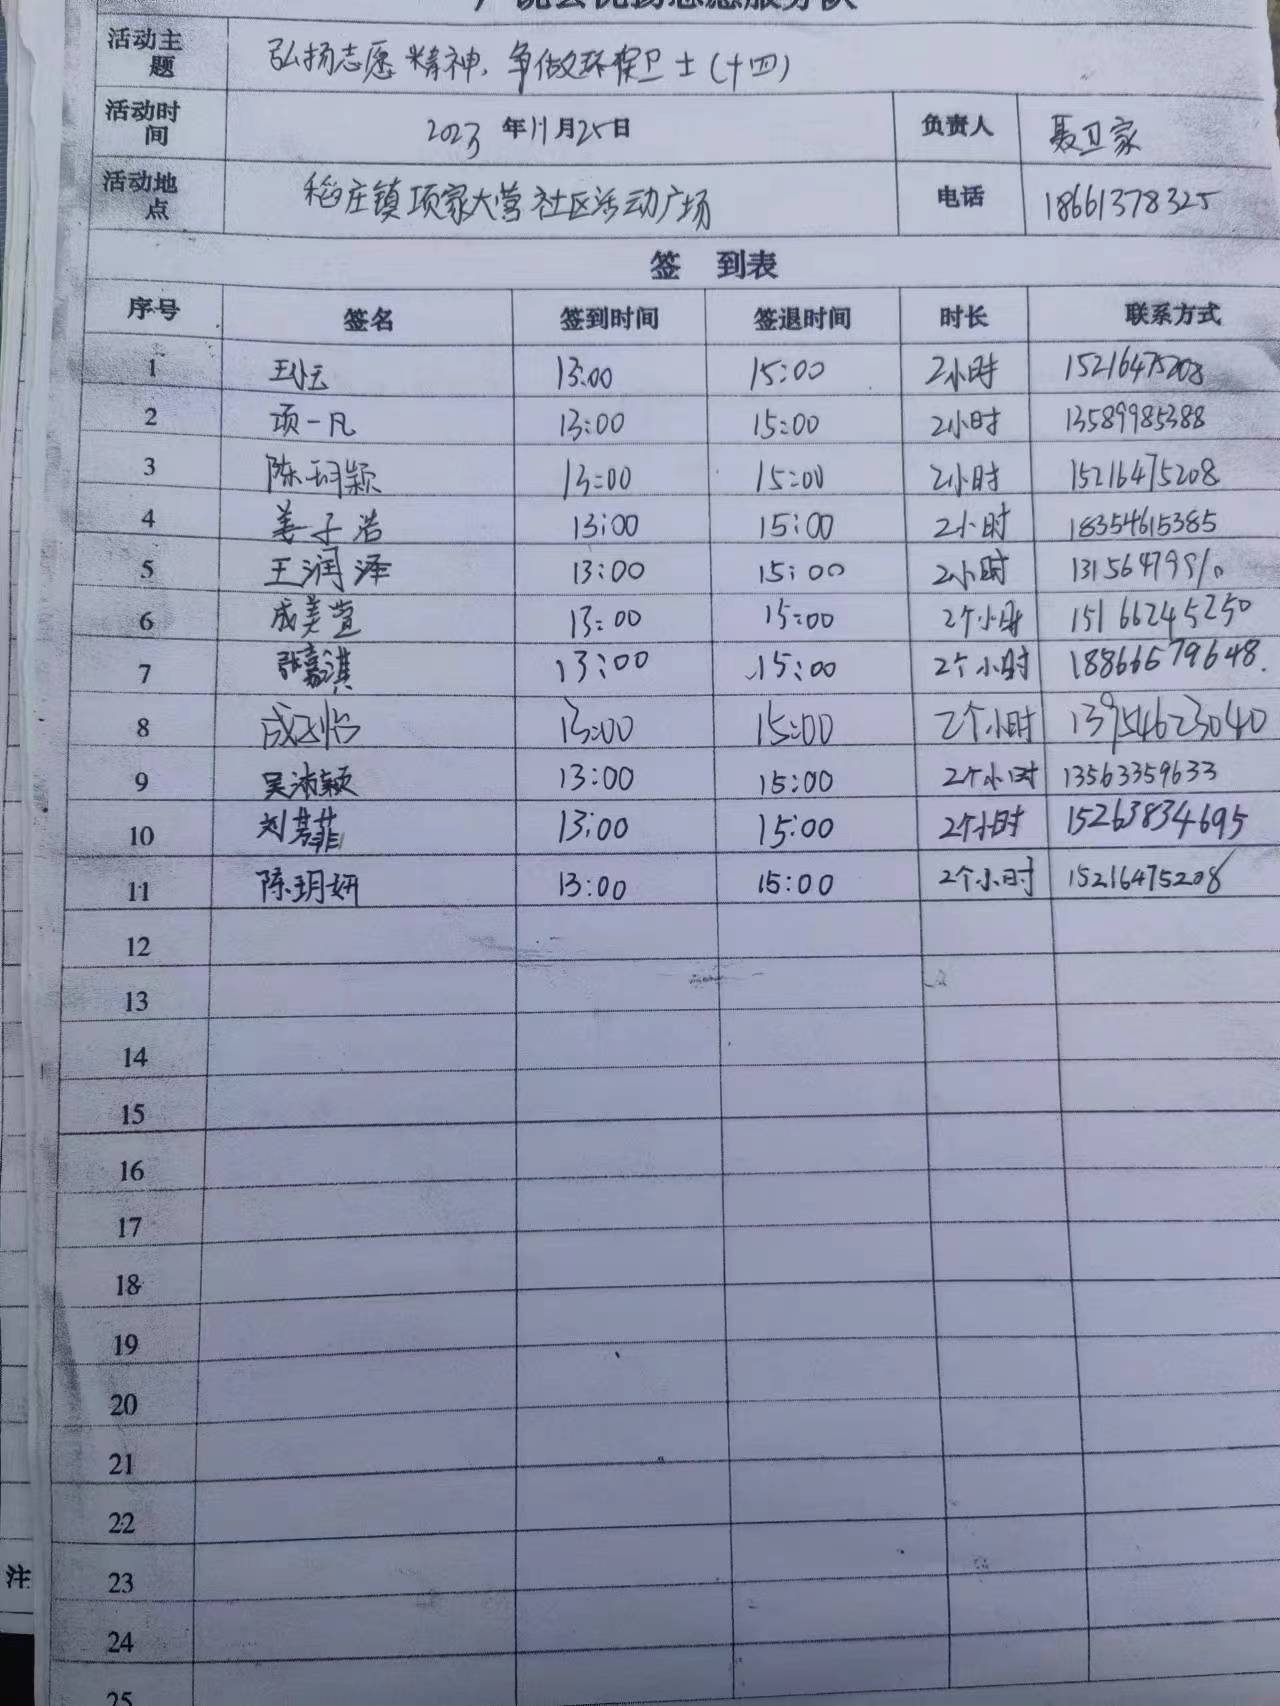 活动主题 弘扬志愿精神，争做环保卫士（十四）
活动时间 2023年11月25日 负责人 聂卫家
活动地点 稻庄镇项家大营社区活动广场 电话 18661378325
签 到表
序号 签名 签到时间 签退时间 时长 联系方式
1 13:00 15:00 2小时 15216475208
2 项一凡 13:00 15:00 2小时 13589985388
3 陈玥颖 13:00 15:00 2小时 15216475208
4 姜子浩 13:00 15:00 2小时 18354615385
5 王润泽 13:00 15:00 2小时
6 成美萱 13:00 15:00 2个小时 15166245250
7 张嘉淇 13:00 15:00 2个小时 18866679648
8 13:00 15:00 2个小时 13954623040
9 吴沛颖 13:00 15:00 2个小时 13563359633
10 13:00 15:00 2个小时 15263834695
11 陈玥妍 13:00 15:00 2个小时 15216475208
12
13
14
15
16
17
18
19
20
21
22
23
24
25
注